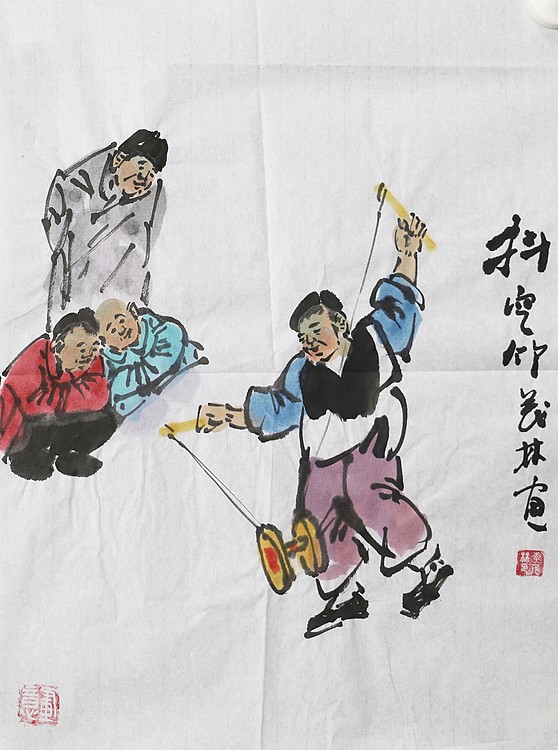 抖空竹茂林画